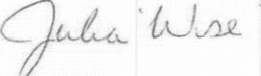 Julia Wise